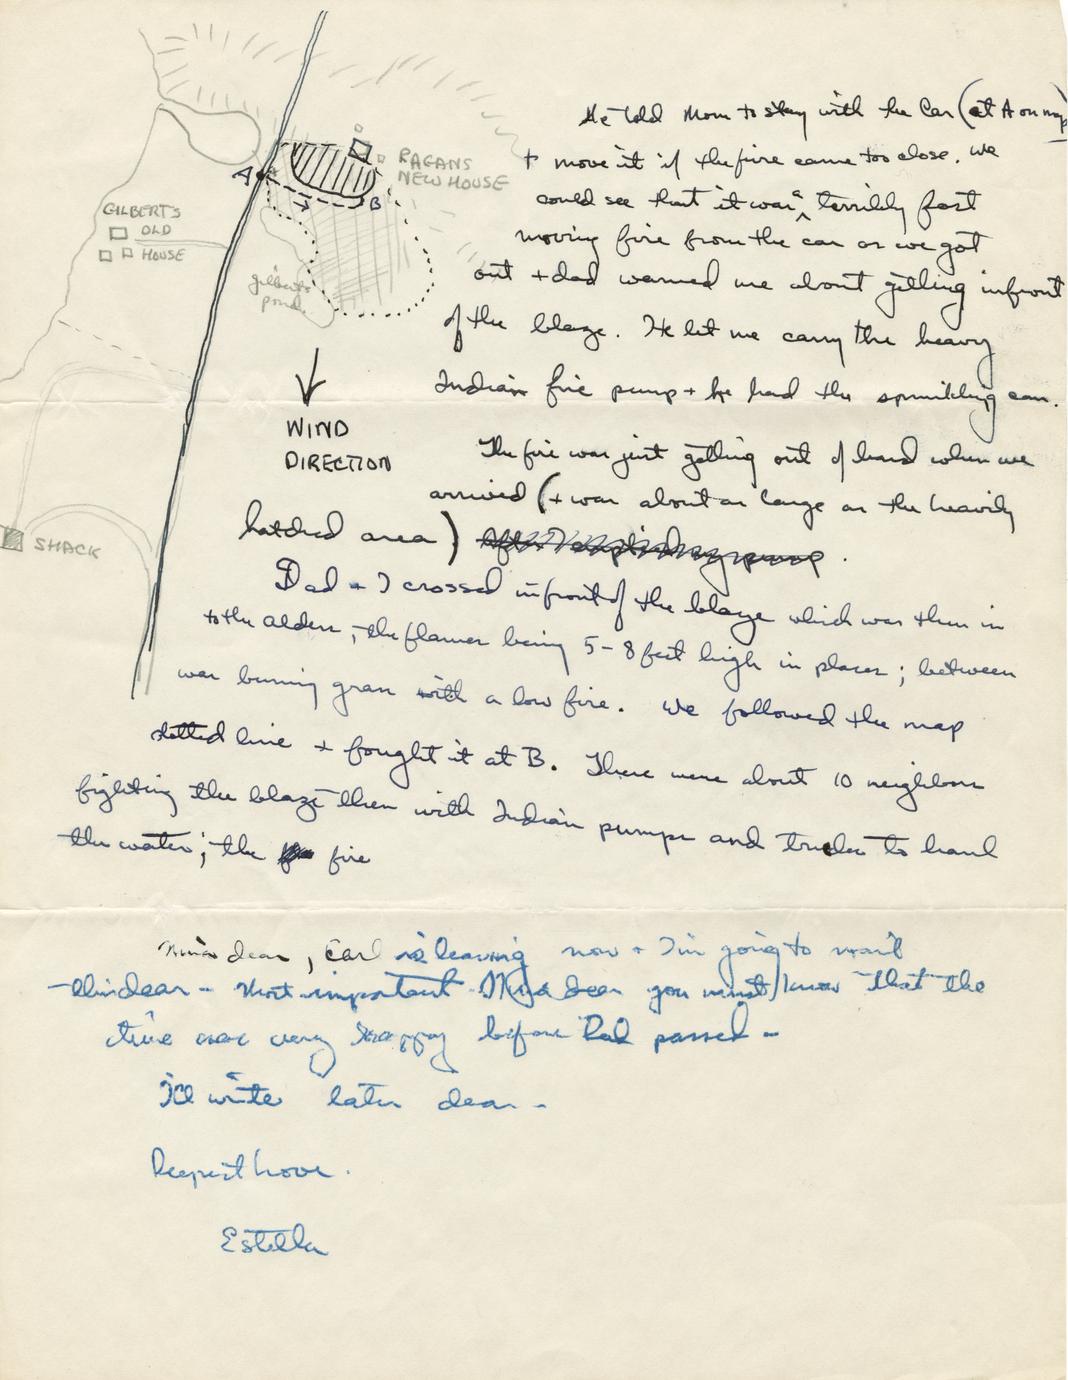 He told Mom to stay with the car (at A on map)
+ move it if the fire came too close. we
could see that it was a terribly fast
moving fire from the car as we got
out + dad warned me about getting infront
of the blaze. He let me carry the heavy
Indian fire pump + he had the sprinkling can.
A
B
RAGANS
NEW HOUSE
GILBERT'S
OLD
HOUSE
gilbert's
pond.
WIND
DIRECTION
SHACK
The fire was just getting out of hand when we
arrived (+ was about as large as the heavily
hatched area)
Dad + I crossed infront of the blaze which was then in
to the alders, the flames being 5-8 feet high in places; between
was burning grass with a low fire. we followed the map
dotted line + fought it at B. There were about 10 neighbors
fighting the blaze then with Indian pumps and trucks to haul
the water; the fire
Nina dear, Carl is leaving now + I'm going to mail
this dear - Most important Nina dear you must know that the
time was very happy before Dad passed -
I'll write later dear -
Deepest Love.
Estella